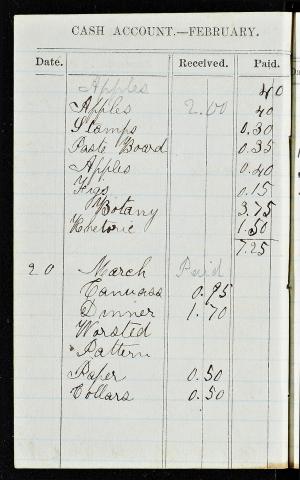 CASH ACCOUNT.—FEBRUARY.
Date. Received. Paid.
Apples 40
Apples 2.00 40
Stamps 0.30
Paste Board 0.35
Apples 0.40
Figs 0.15
Botany 3.75
Rhetoric 1.50
7.25
20 March Paid
Canvass 0.95
Dinner 1.70
Worsted
" Pattern
Paper 0.50
Collars 0.50